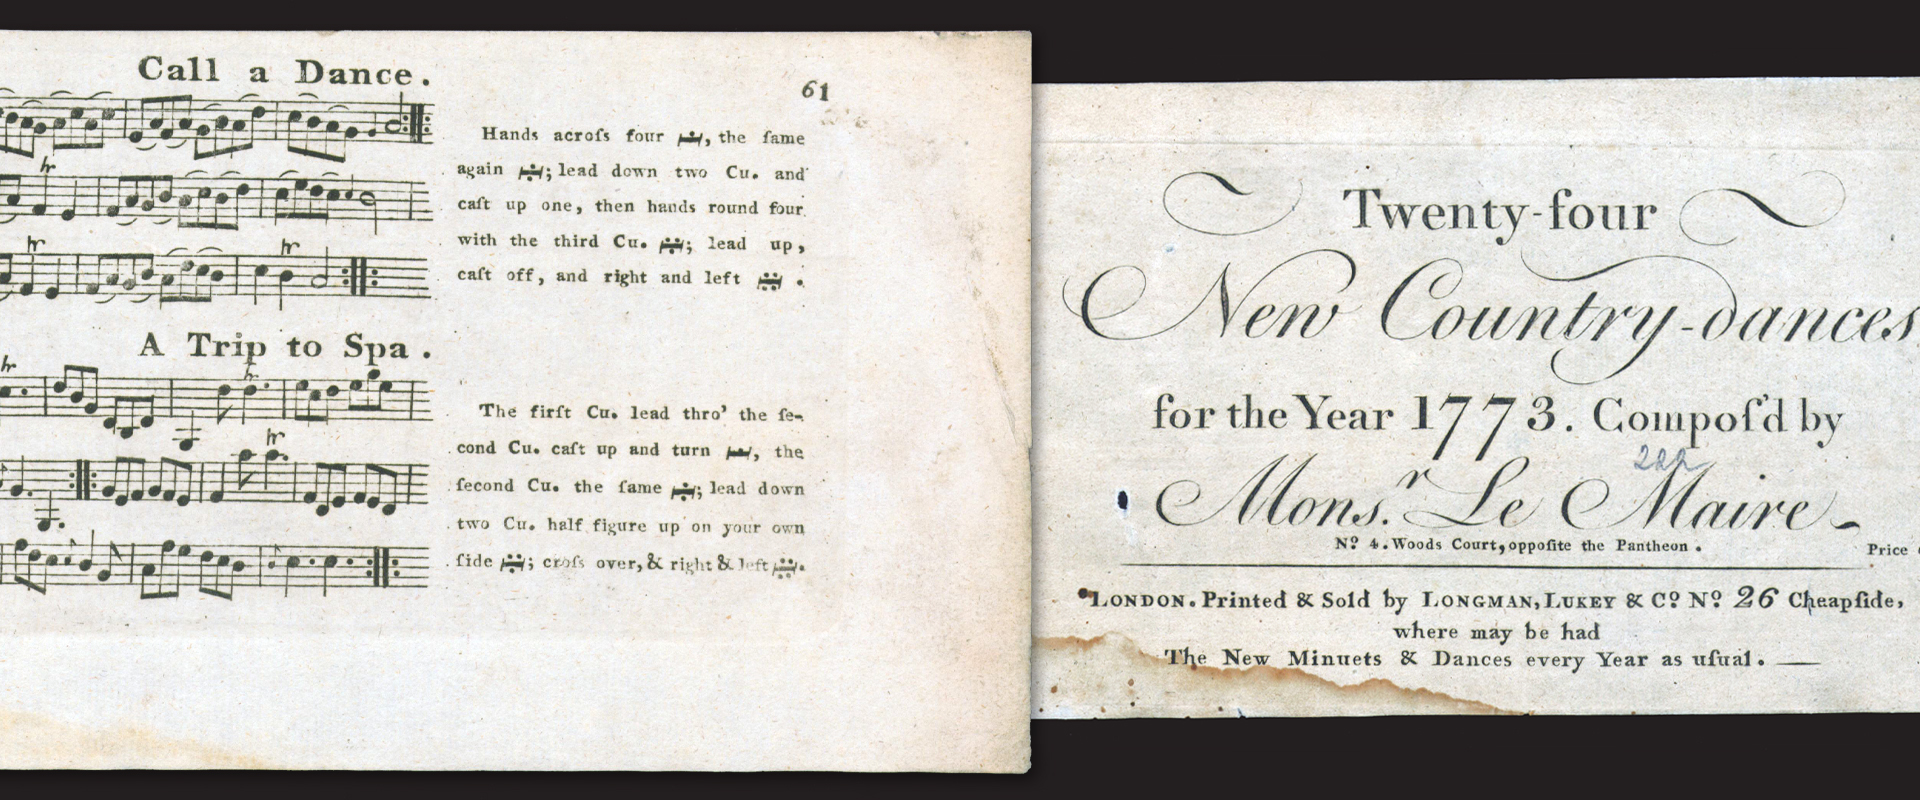 Call a Dance.
61
Hands acroſs four, the ſame
again; lead down two Cu. and
caſt up one, then hands round four
with the third Cu.; lead up,
caſt off, and right and left.
A Trip to Spa.
The firſt Cu. lead thro' the ſe-
cond Cu. caſt up and turn, the
ſecond Cu. the ſame; lead down
two Cu. half figure up on your own
ſide; croſs over, & right & left.
Twenty-four
New Country-dances
for the Year 1773. Compoſ'd by
222
Monsr. Le Maire
No. 4. Woods Court, oppoſite the Pantheon.
Price
LONDON. Printed & Sold by LONGMAN, LUKEY & Co. No. 26 Cheapſide,
where may be had
The New Minuets & Dances every Year as uſual.